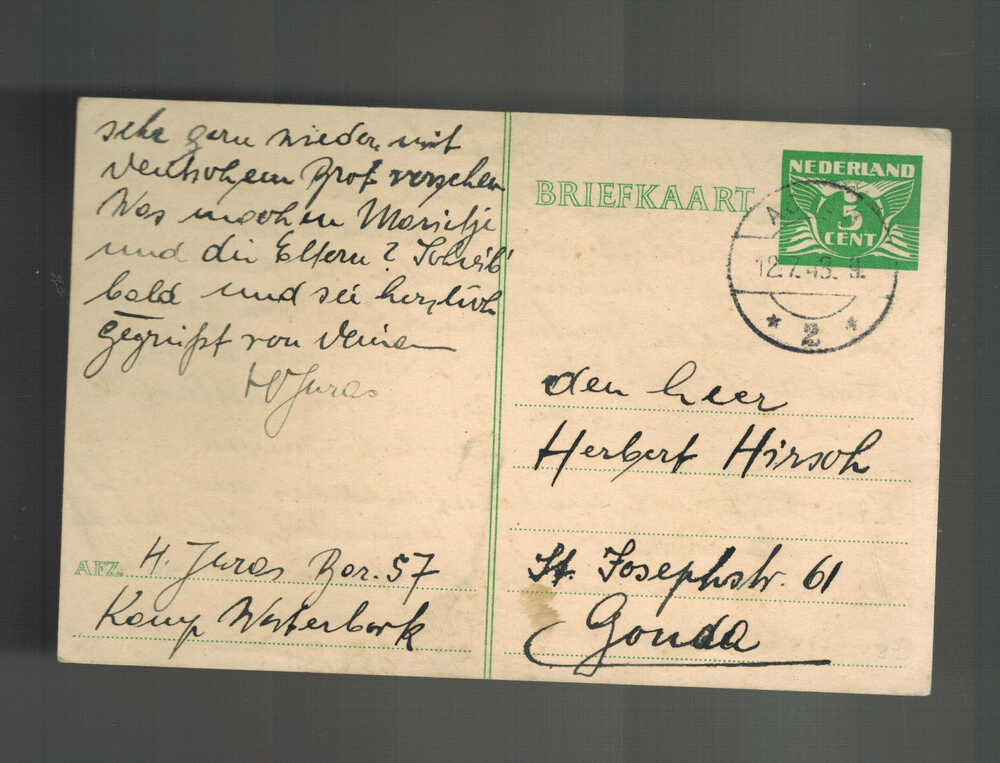 sehr gern wieder mit
Deutschem Brot versehen
Was machen Marietje
und die Eltern? Schreib'
bald und sei herzlich
gegrüßt von Deinem
H Juras
AFZ. H. Juras Bar. 57
Kamp Westerbork
BRIEFKAART
NEDERLAND
3
CENT
12.7.43. 9.
2
den heer
Herbert Hirsch
St. Josephstr. 61
Gouda